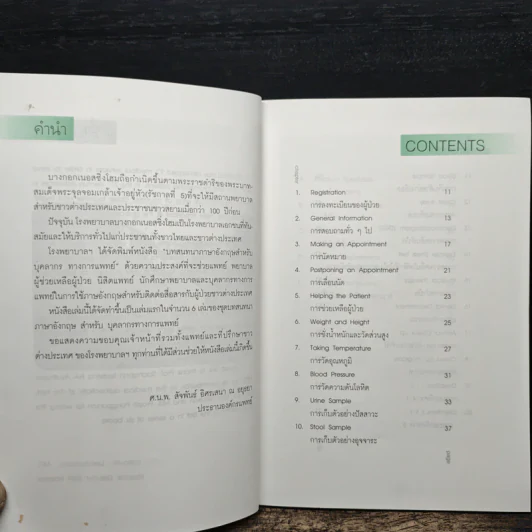 คำนำ
บางกอกเนอสซิ่งโฮมถือกำเนิดขึ้นตามพระราชดำริของพระบาท-
สมเด็จพระจุลจอมเกล้าเจ้าอยู่หัว(รัชกาลที่ 5)ที่จะให้มีสถานพยาบาล
สำหรับชาวต่างประเทศและประชาชนชาวสยามเมื่อกว่า 100 ปีก่อน
ปัจจุบัน โรงพยาบาลบางกอกเนอสซิ่งโฮมเป็นโรงพยาบาลเอกชนที่ทัน
สมัยและให้บริการทั่วไปแก่ประชาชนทั้งชาวไทยและชาวต่างประเทศ
โรงพยาบาลฯ ได้จัดพิมพ์หนังสือ "บทสนทนาภาษาอังกฤษสำหรับ
บุคลากร ทางการแพทย์" ด้วยความประสงค์ที่จะช่วยแพทย์ พยาบาล
ผู้ช่วยเหลือผู้ป่วย นิสิตแพทย์ นักศึกษาพยาบาลและบุคลากรทางการ
แพทย์ในการใช้ภาษาอังกฤษสำหรับติดต่อสื่อสารกับผู้ป่วยชาวต่างประเทศ
หนังสือเล่มนี้ได้จัดทำขึ้นเป็นเล่มแรกในจำนวน 6 เล่มของชุดบทสนทนา
ภาษาอังกฤษ สำหรับ บุคลากรทางการแพทย์
ขอแสดงความขอบคุณเจ้าหน้าที่รวมทั้งแพทย์และที่ปรึกษาชาว
ต่างประเทศ ของโรงพยาบาลฯ ทุกท่านที่ได้มีส่วนช่วยให้หนังสือเล่มนี้เกิดขึ้น
ศ.น.พ. สัจพันธ์ อิศรเสนา ณ อยุธยา
ประธานองค์กรแพทย์
CONTENTS
1. Registration 11
การลงทะเบียนของผู้ป่วย
2. General Information 13
การสอบถามทั่ว ๆ ไป
3. Making an Appointment 17
การนัดหมาย
4. Postponing an Appointment 21
การเลื่อนนัด
5. Helping the Patient 23
การช่วยเหลือผู้ป่วย
6. Weight and Height 25
การชั่งน้ำหนักและวัดส่วนสูง
7. Taking Temperature 27
การวัดอุณหภูมิ
8. Blood Pressure 31
การวัดความดันโลหิต
9. Urine Sample 33
การเก็บตัวอย่างปัสสาวะ
10. Stool Sample 37
การเก็บตัวอย่างอุจจาระ